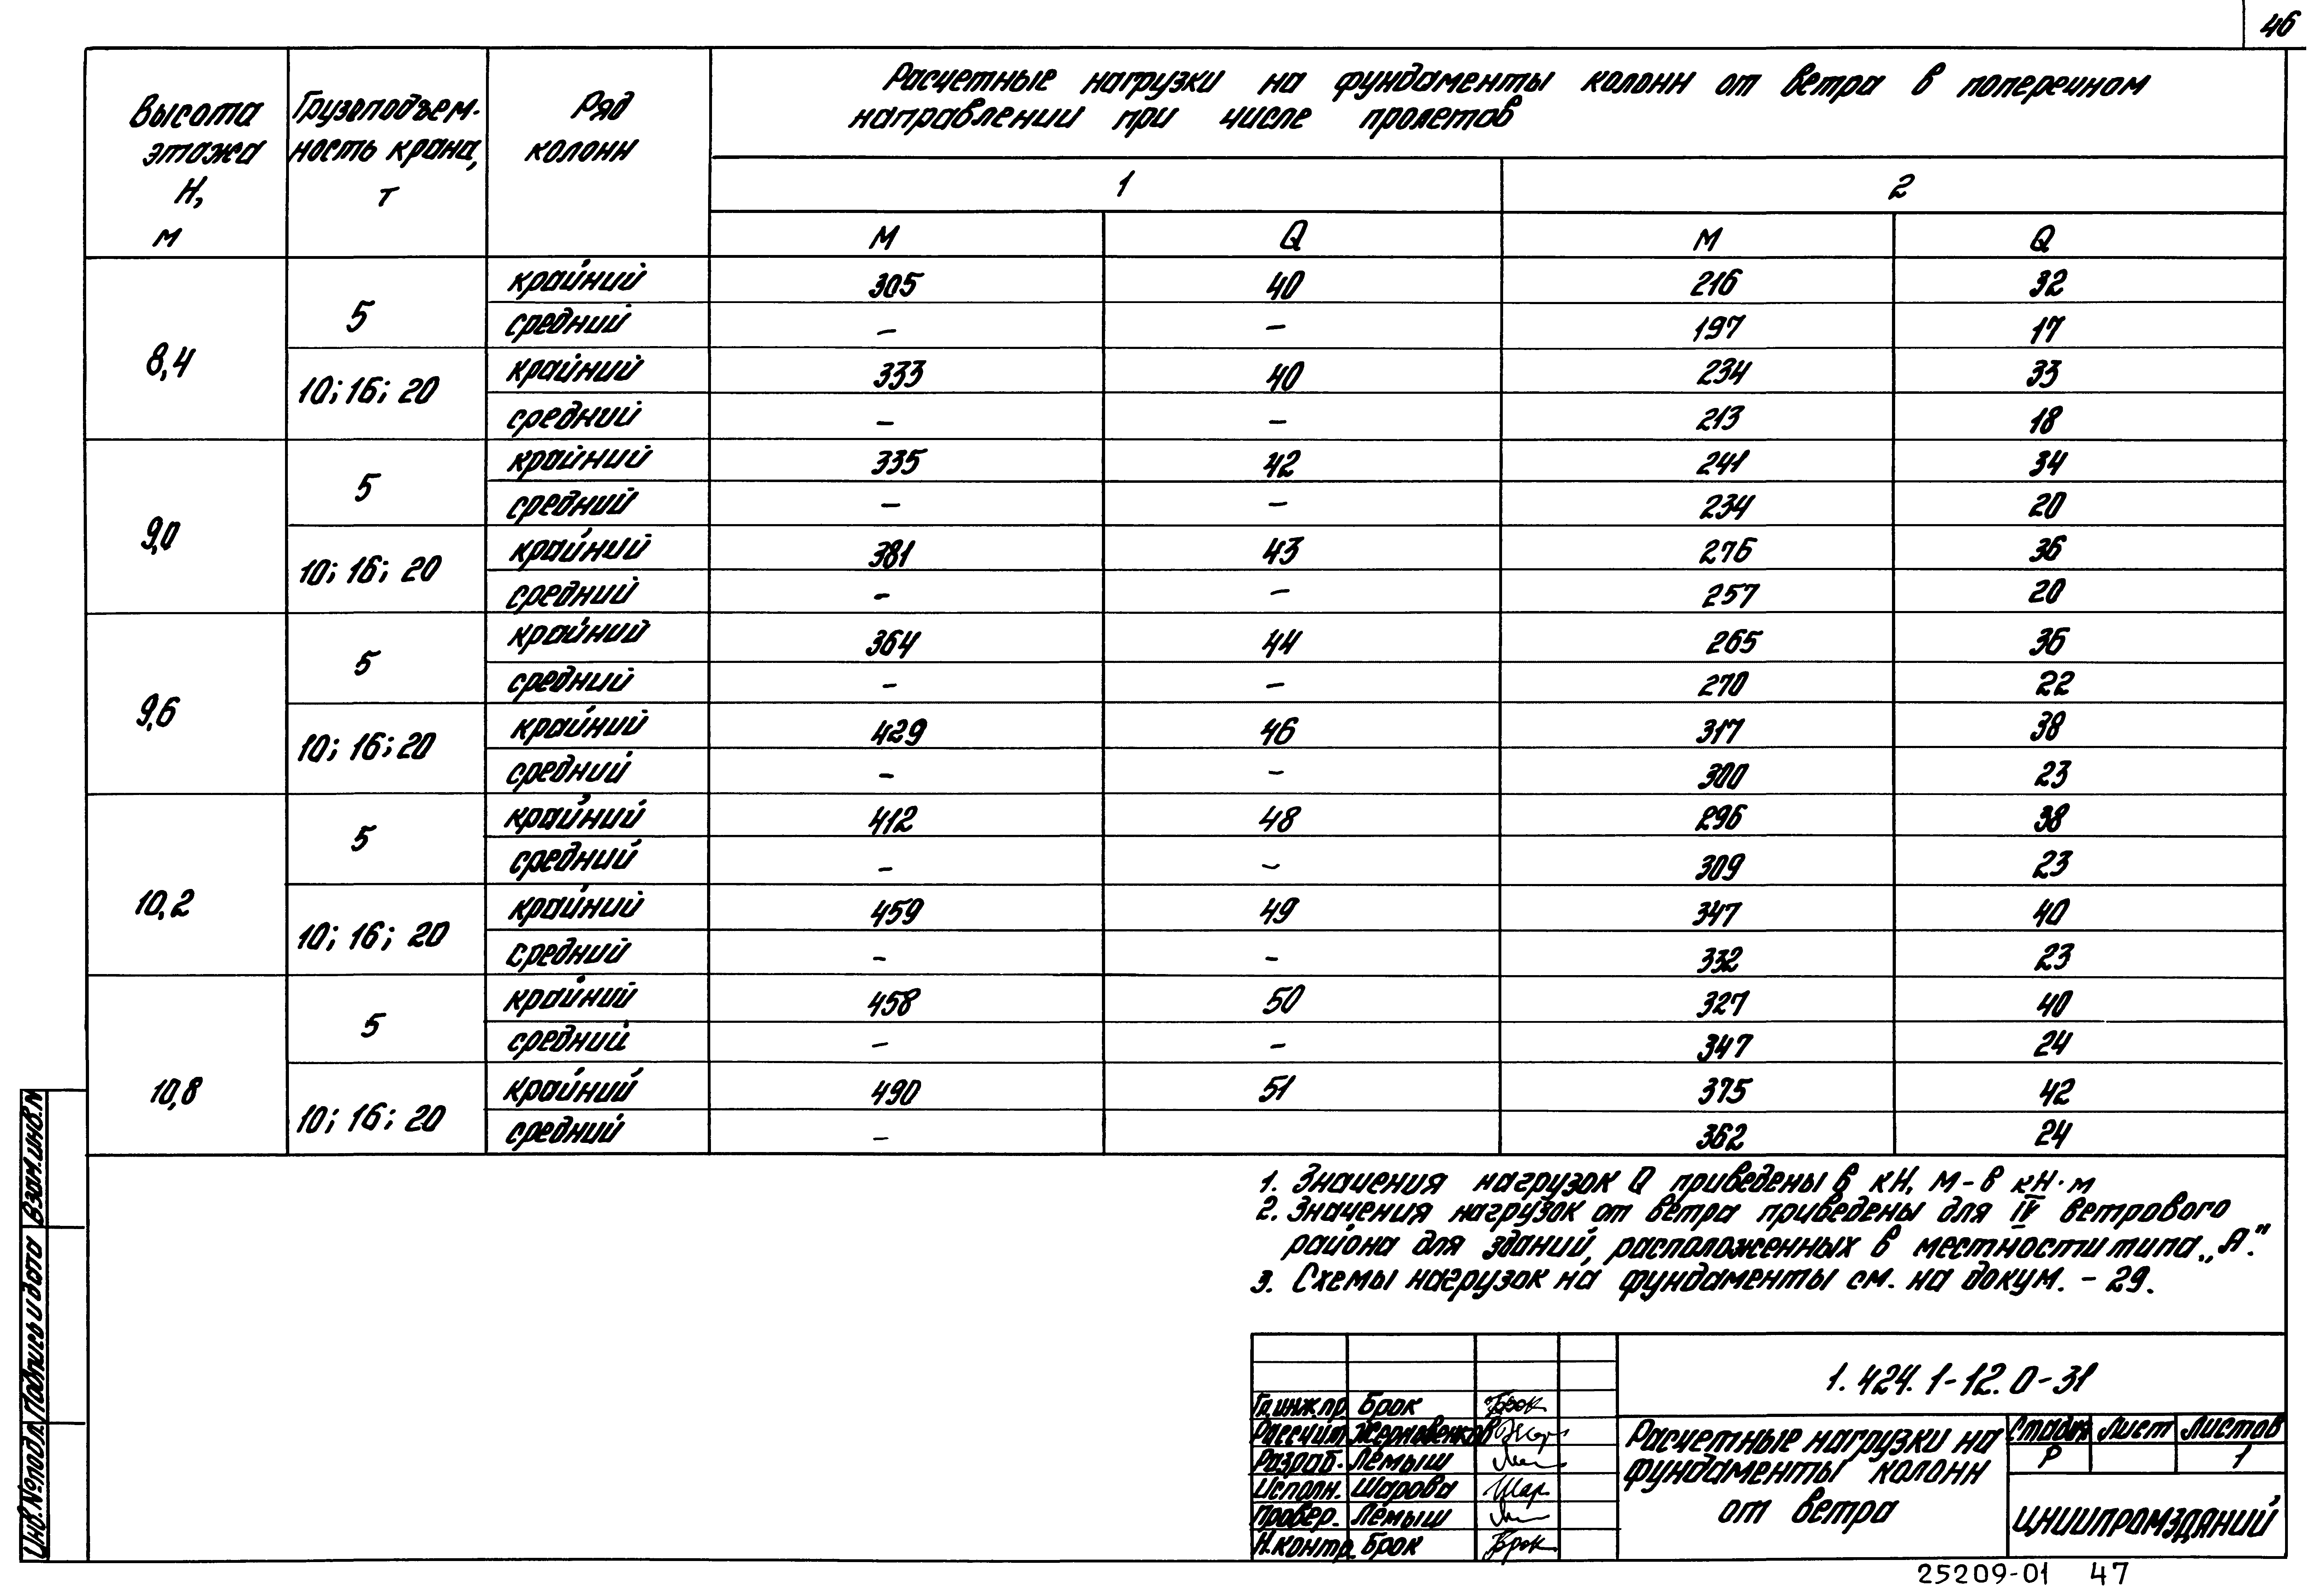 46
Высота этажа H, м
Грузоподъем-ность крана, т
Ряд колонн
Расчетные нагрузки на фундаменты колонн от ветра в поперечном
направлении при числе пролетов
1 2
M Q M Q
8,4 5 крайний 305 40 216 32
средний – – 197 17
10; 16; 20 крайний 333 40 234 33
средний – – 213 18
9,0 5 крайний 335 42 241 34
средний – – 234 20
10; 16; 20 крайний 381 43 276 36
средний – – 257 20
9,6 5 крайний 364 44 265 36
средний – – 270 22
10; 16; 20 крайний 429 46 317 38
средний – – 300 23
10,2 5 крайний 412 48 296 38
средний – – 309 23
10; 16; 20 крайний 459 49 347 40
средний – – 332 23
10,8 5 крайний 458 50 327 40
средний – – 347 24
10; 16; 20 крайний 490 51 375 42
средний – 362 24
1. Значения нагрузок Q приведены в кН, М – в кН·м
2. Значения нагрузок от ветра приведены для IV ветрового
района для зданий, расположенных в местности типа „А".
3. Схемы нагрузок на фундаменты см. на докум. – 29.
1.424.1-12.0-31
Гл.инж.пр. Брок Брок
Рассчит. Жерновенков
Разраб. Лемыш
Исполн. Шарова Шар
Провер. Лемыш
Н.контр. Брок Брок
Расчетные нагрузки на
фундаменты колонн
от ветра
Стадия Лист Листов
Р 1
ЦНИИПРОМЗДАНИЙ
Инв.№ подл. Подпись и дата Взам.инв.N
25209-01 47